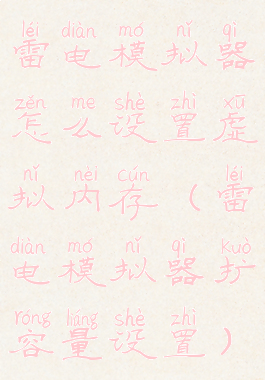 léi diàn mó nǐ qì
雷电模拟器
zěn me shè zhì xū
怎么设置虚
nǐ nèi cún léi
拟内存（雷
diàn mó nǐ qì kuò
电模拟器扩
róng liáng shè zhì
容量设置）